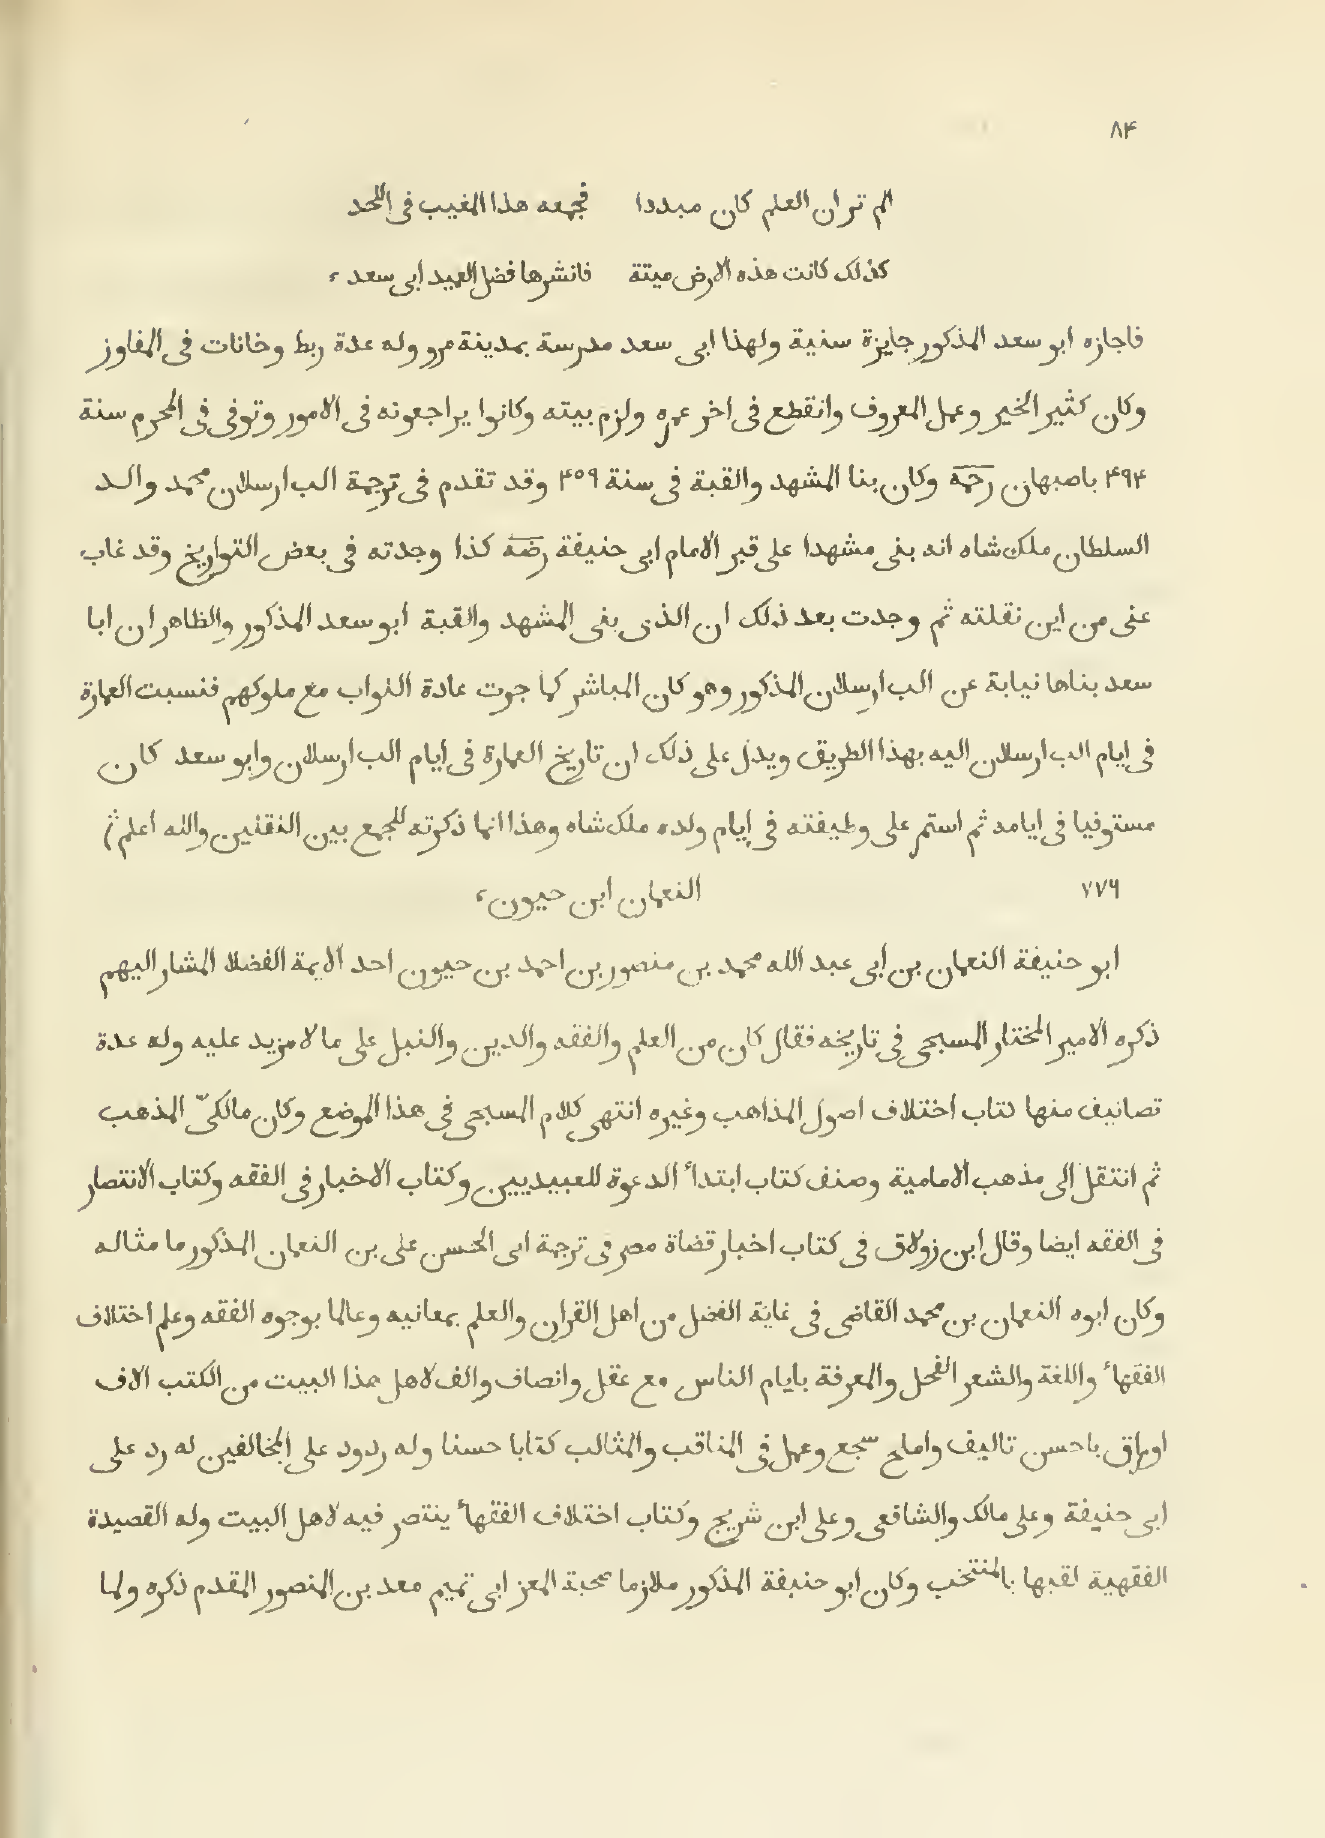 ٨۴
الم تر ان العلم كان مبددا فجمعه هذا المغيب فى اللحد
كذلك كانت هذه الارض ميتة فانشرها فضل العميد ابى سعد ،
فاجازه ابو سعد المذكور جايزة سنية ولهذا ابى سعد مدرسة بمدينة مرو وله عدة ربط وخانات فى المفاوز
وكان كثير الخير وعمل المعروف وانقطع فى اخر عمره ولزم بيته وكانوا يراجعونه فى الامور وتوفى فى المحرم سنة
۴٩۴ باصبهان رحمة وكان بنا المشهد والقبة فى سنة ۴٥٩ وقد تقدم فى ترجمة الب ارسلان محمد والد
السلطان ملك شاه انه بنى مشهدا على قبر الامام ابى حنيفة رضه كذا وجدته فى بعض التواريخ وقد غاب
عنى من اين نقلته ثم وجدت بعد ذلك ان الذى بنى المشهد والقبة ابو سعد المذكور والظاهر ان ابا
سعد بناها نيابة عن الب ارسلان المذكور وهو كان المباشر كما جرت عادة النواب مع ملوكهم فنسبت العمارة
فى ايام الب ارسلان اليه بهذا الطريق ويدل على ذلك ان تاريخ العمارة فى ايام الب ارسلان وابو سعد كان
مستوفيا فى ايامه ثم استمر على وظيفته فى ايام ولده ملك شاه وهذا انما ذكرته للجمع بين النقلين والله اعلم ❊
٧٧٦ النعمان ابن حيون ،
ابو حنيفة النعمان بن ابى عبد الله محمد بن منصور بن احمد بن حيون احد الايمة الفضلا المشار اليهم
ذكره الامير المختار المسبحى فى تاريخه فقال كان من العلم والفقه والدين والنبل على ما لا مزيد عليه وله عدة
تصانيف منها كتاب اختلاف اصول المذاهب وغيره انتهى كلام المسبحى فى هذا الموضع وكان مالكىّ المذهب
ثم انتقل الى مذهب الامامية وصنف كتاب ابتدأ الدعوة للعبيديين وكتاب الاخبار فى الفقه وكتاب الانتصار
فى الفقه ايضا وقال ابن زولاق فى كتاب اخبار قضاة مصر فى ترجمة ابى الحسن على بن النعمان المذكور ما مثاله
وكان ابوه النعمان بن محمد القاضى فى غاية الفضل من اهل القران والعلم بمعانيه وعالما بوجوه الفقه وعلم اختلاف
الفقهأ واللغة والشعر الفحل والمعرفة بايام الناس مع عقل وانصاف والف لاهل هذا البيت من الكتب الاف
اوراق باحسن تاليف واملح سجع وعمل فى المناقب والمثالب كتابا حسنا وله ردود على المخالفين له رد على
ابى حنيفة وعلى مالك والشافعى وعلى ابن شريح وكتاب اختلاف الفقهأ ينتصر فيه لاهل البيت وله القصيدة
الفقهية لقبها بالمنتخب وكان ابو حنيفة المذكور ملازما صحبة المعز ابى تميم معد بن المنصور المقدم ذكره ولما